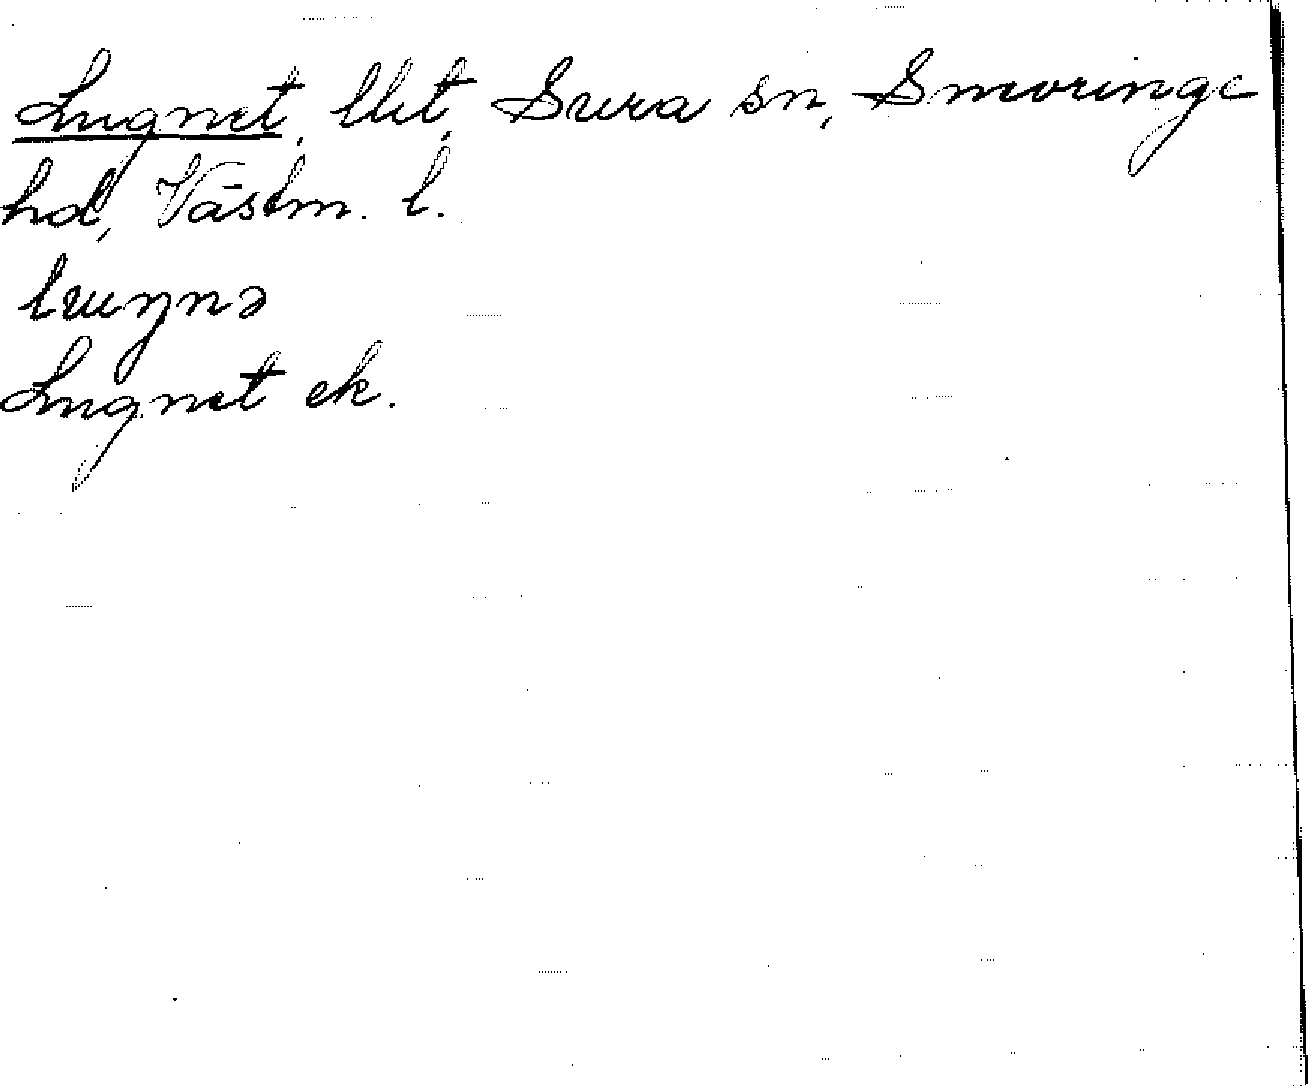 Lugnet, llt, Sura sn, Snevringe
hd, Västm. l.
Lugnet ek.